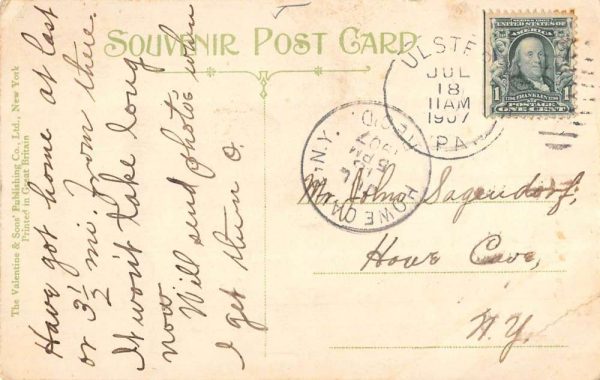 SOUVENIR POST CARD
The Valentine & Sons' Publishing Co., Ltd., New York
Printed in Great Britain
Have got home at last
or 3 1/2 mi. from there.
It won't take long
now
Will send photo's when
I get them
ULSTER
JUL
18
11AM
1907
PA.
SERIES 1902
UNITED STATES OF AMERICA
FRANKLIN
1 1
POSTAGE ONE CENT
HOWE CAVE, N.Y.
REC'D
5 PM
1907
Mr. John Sagendorf,
Howe Cave,
N.Y.